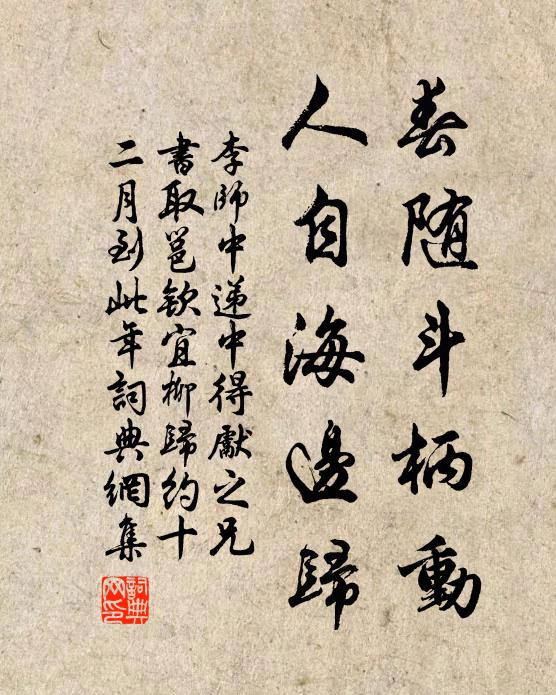 春随斗柄動
人自海邊歸
李師中递中得獻之兄
書取邕欽宜柳歸約十
二月到此年詞典網集
詞典网印